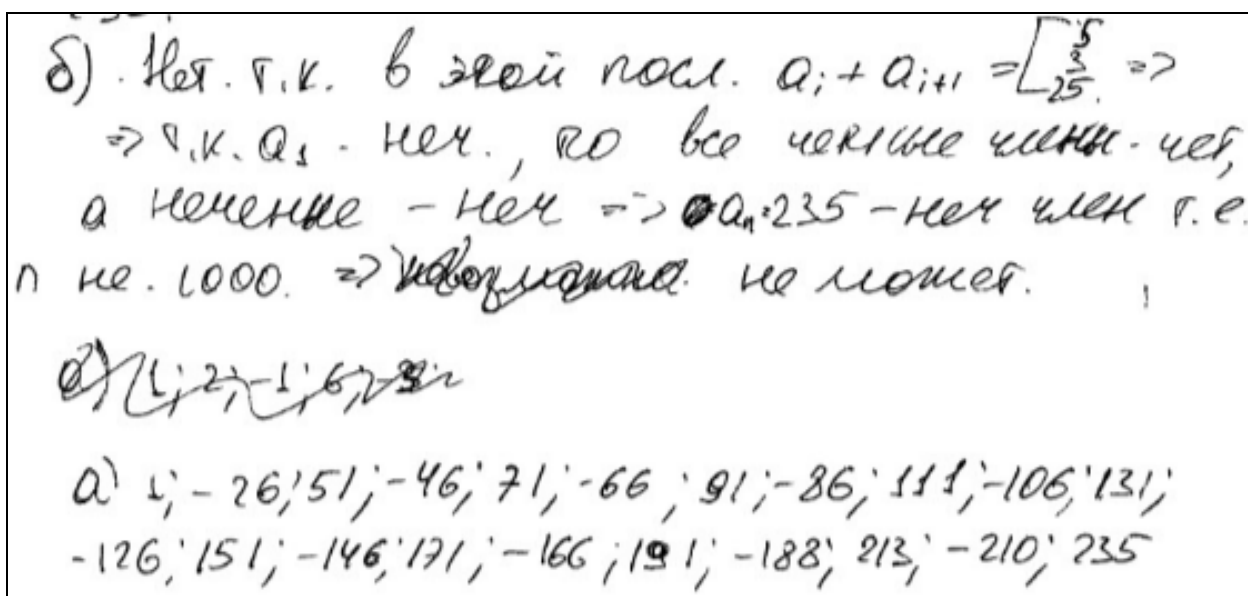 б). Нет. т.к. в этой посл. a_i + a_{i+1} = [5 3 25. =>
=> т.к. a_1 - неч., то все четные члены - чет,
а нечетные - неч => a_n = 235 - неч член т.е.
n не. 1000. => не может.
а) 1; 2; -1; 6;
а) 1; -26; 51; -46; 71; -66; 91; -86; 111; -106; 131;
-126; 151; -146; 171; -166; 191; -188; 213; -210; 235